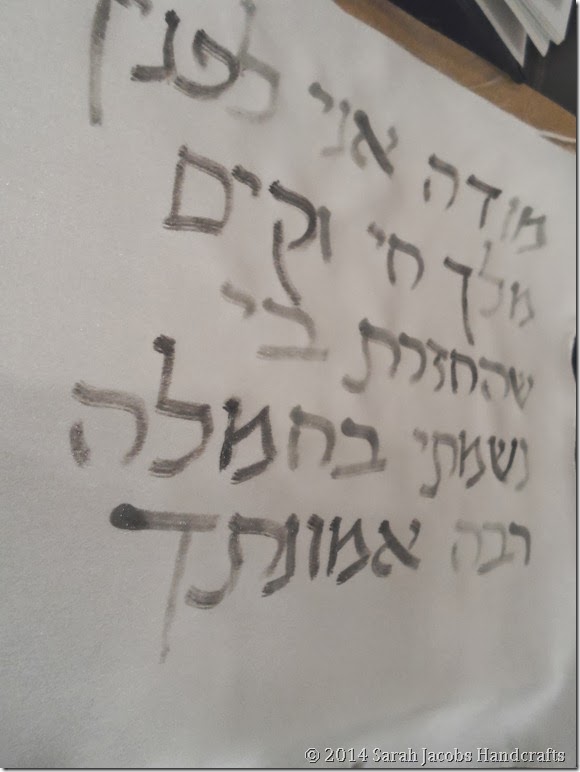 מודה אני לפניך
מלך חי וקים
שהחזרת בי
נשמתי בחמלה
רבה אמונתך
© 2014 Sarah Jacobs Handcrafts